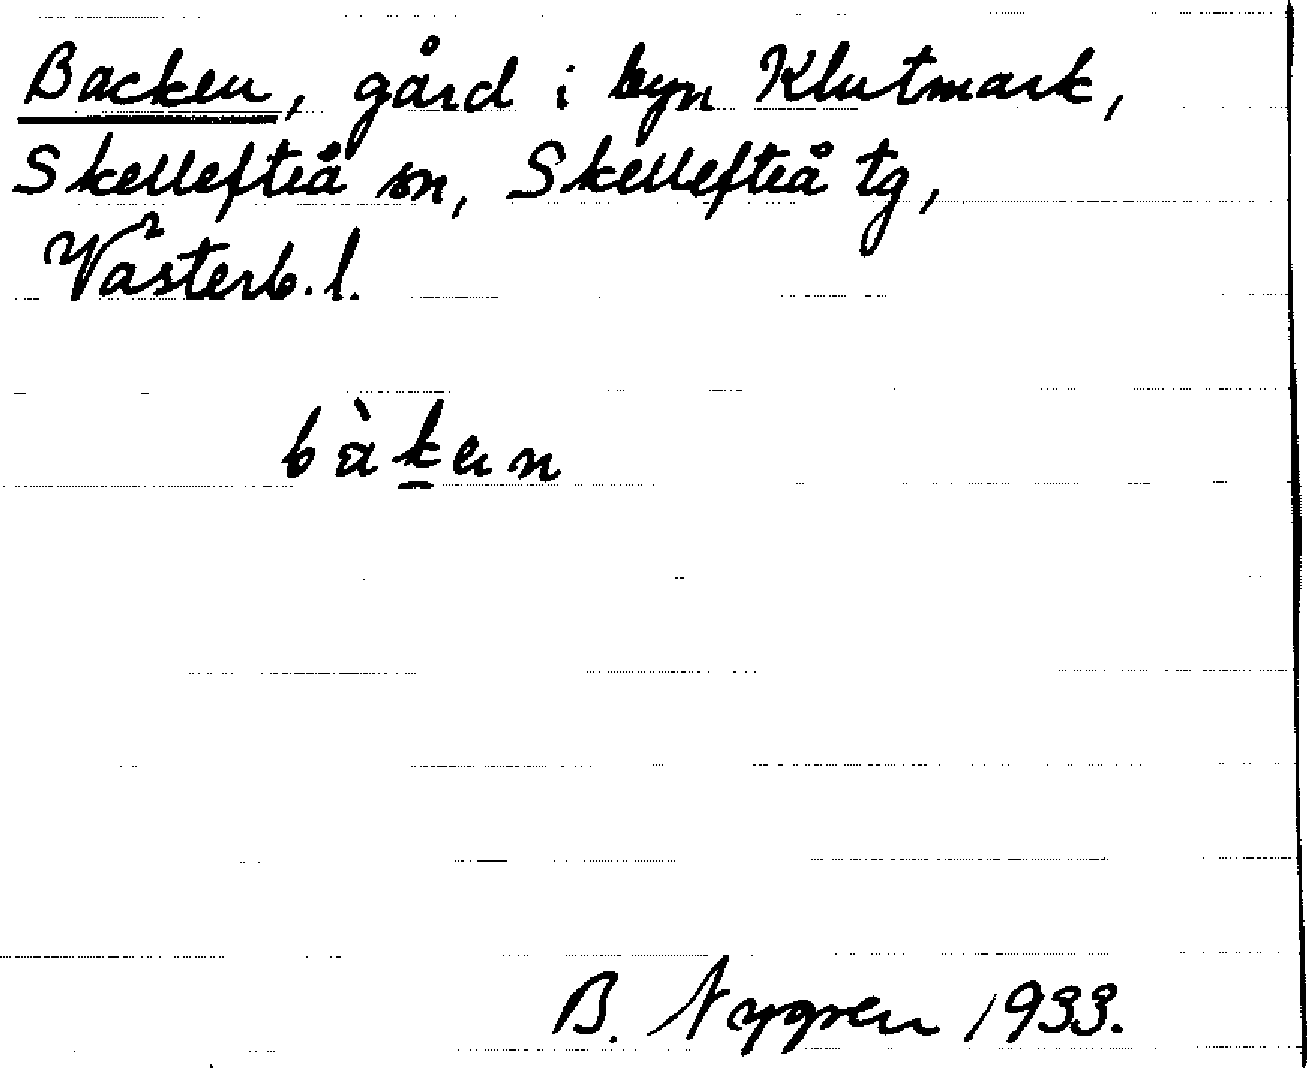 Backen, gård i byn Klutmark,
Skellefteå sn, Skellefteå tg,
Västerb. l.
B. Nygren 1933.